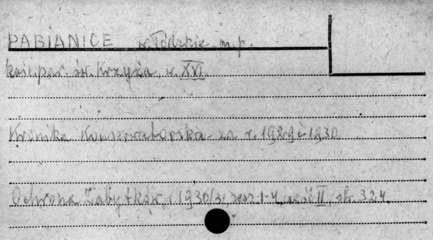 PABIANICE w. łódzkie m. p.
św. Krzyża w. XVI
Kronika Konserwatorska za r. 1929 i 1930
Ochrona Zabytków, 1930/31, zesz. 1-4, część II, str. 324.